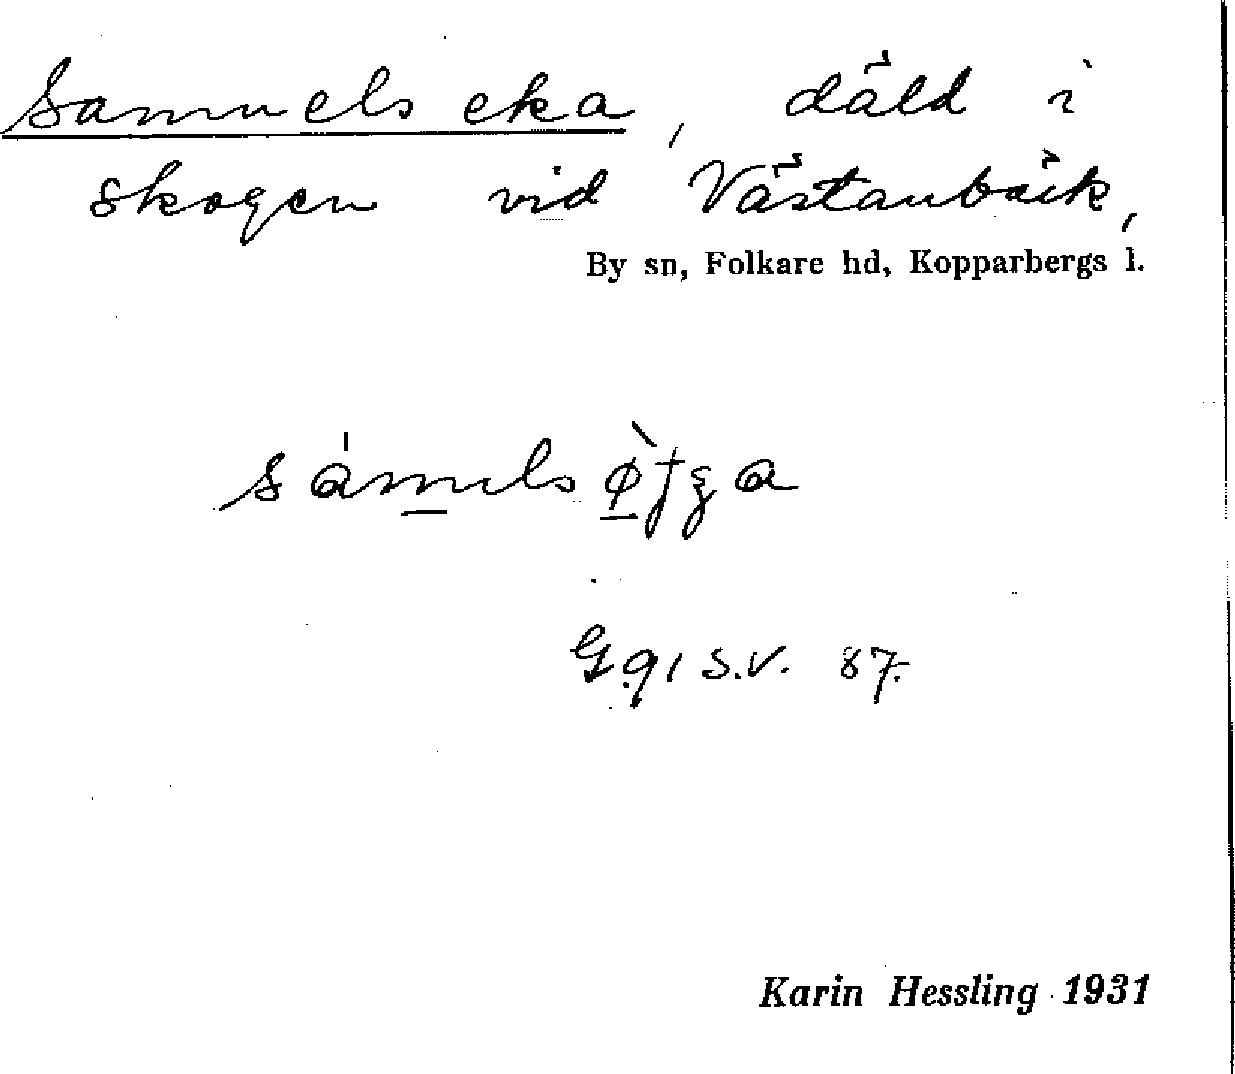 Samuels eka, däld i
skogen vid Västanbäck,
By sn, Folkare hd, Kopparbergs l.
G 91 S.V. 87.
Karin Hessling 1931